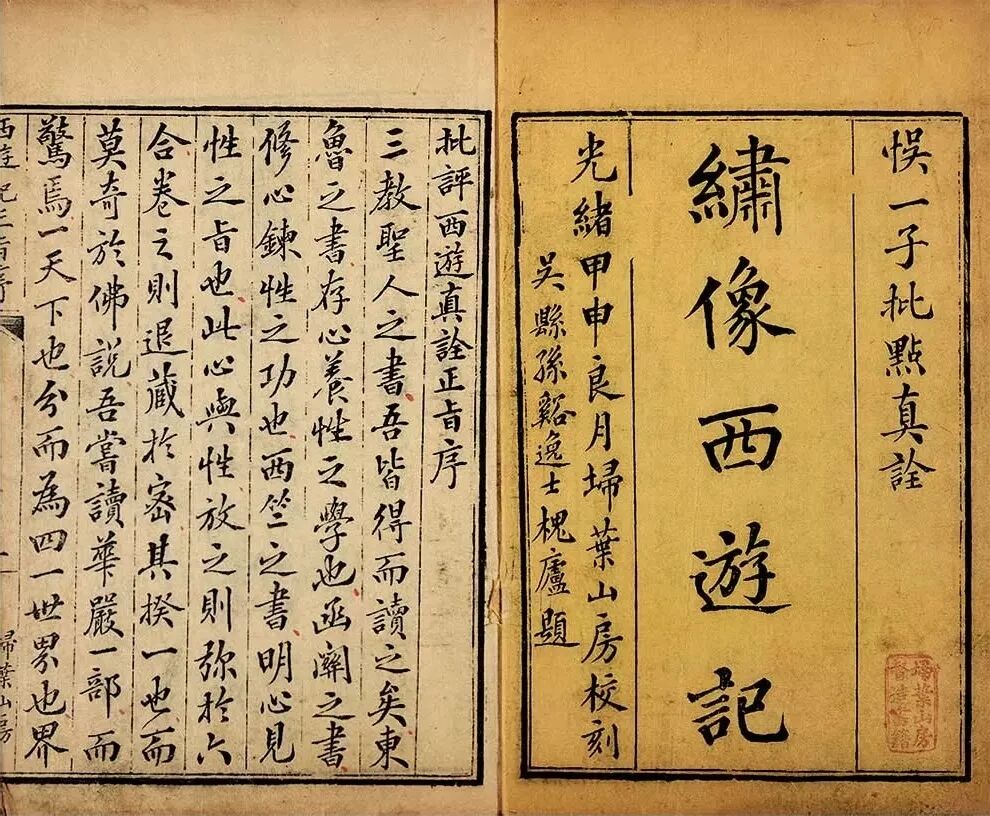 悞一子批點真詮
繡像西遊記
光緒甲申良月埽葉山房校刻
吳縣孫谿逸士槐廬題
埽葉山房
督造書籍
批評西遊真詮正旨序
三教聖人之書吾皆得而讀之矣東
魯之書存心養性之學也函關之書
修心鍊性之功也西竺之書明心見
性之旨也此心與性放之則弥於六
合卷之則退藏於密其揆一也而
莫奇於佛說吾嘗讀華嚴一部而
驚焉一天下也分而為四一世界也界
西遊記
序
埽葉山房